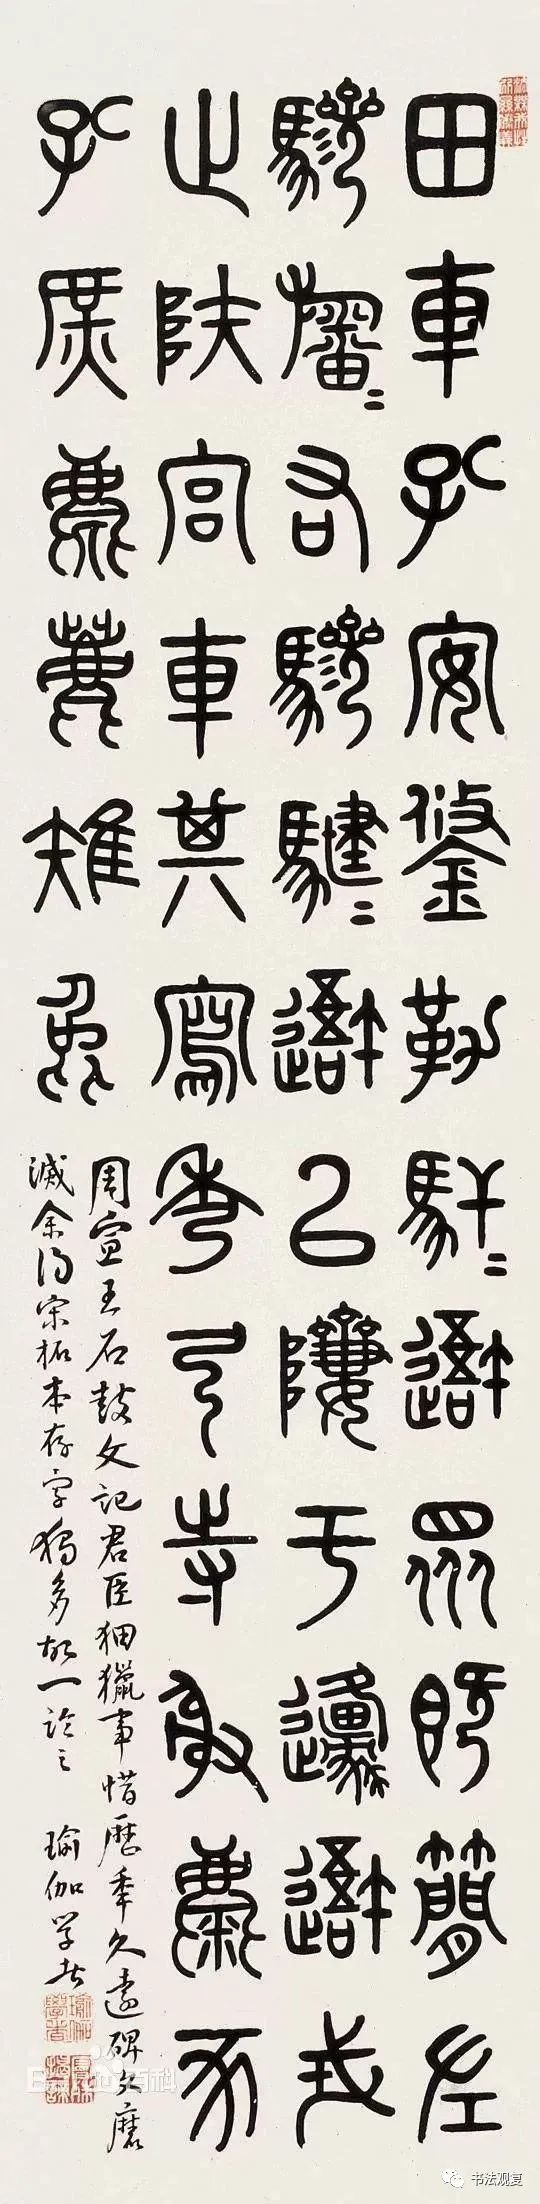 田車孔安鋚勒馯=䢦眾既簡左
驂旛=右驂騝=䢦㠯隮于邍䢦戎
止陜宮車其寫秀弓寺射麋豕
孔庶麀鹿雉兔
周宣王石鼓文記君臣畋獵事惜歷年久遠碑文磨
滅余得宋拓本存字獨多故一論之 瑜伽學者
百科
书法观复